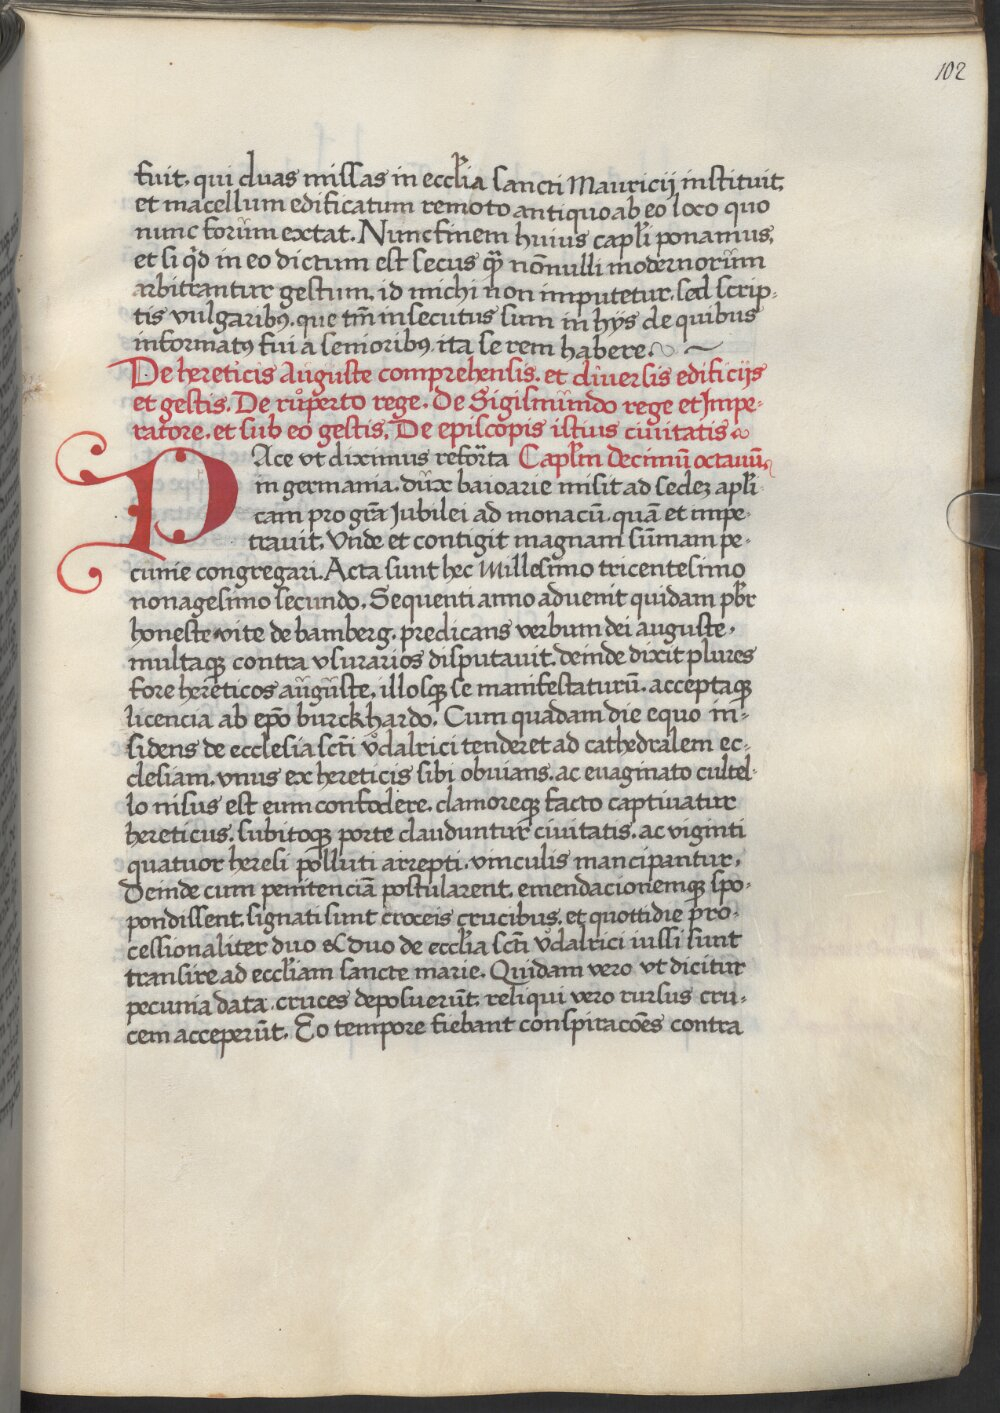 102
fuit, qui duas missas in ecclia sancti Mauricij instituit,
et macellum edificatum remoto antiquo ab eo loco quo
nunc forum extat. Nunc finem huius capli ponamus,
et si qd in eo dictum est secus qȝ nōnulli modernorum
arbitrantur gestum, id michi non imputetur, sed scrip-
tis vulgaribꝯ, que tm̄ insecutus sum in hijs de quibus
informatꝯ fui a senioribꝯ, ita se rem habere.
De hereticis Auguste comprehensis. et diuersis edificijs
et gestis. De ruͦperto rege. De Sigismundo rege et Impe-
ratore, et sub eo gestis. De episcopis istius ciuitatis
PAce vt diximus reforͫta Caplm decimū octauū
in germania. dux baioarie misit ad sedeȝ apli-
cam pro grā Jubilei ad monacū. quā et impe-
trauit. Vnde et contigit magnam sūmam pe-
cunie congregari. Acta sunt hec Millesimo tricentesimo
nonagesimo secundo. Sequenti anno aduenit quidam pbr
honeste vite de bamberg. predicans verbum dei auguste,
multaqȝ contra vsurarios disputauit. deinde dixit plures
fore hereticos auguste, illosqȝ se manifestaturū. acceptaqȝ
licencia ab epō burckhardo. Cum quadam die equo in-
sidens de ecclesia scti vͦdalrici tenderet ad cathedralem ec-
clesiam. vnus ex hereticis sibi obuians. ac euaginato cultel-
lo nisus est eum confodere. clamoreqȝ facto captiuatur
hereticus. subitoqȝ porte clauduntur ciuitatis. ac viginti
quatuor heresi polluti arrepti. vinculis mancipantur,
Deinde cum penitenciā postularent. emendacionemqȝ spo-
pondissent. signati sunt croceis crucibus. et quottidie pro-
cessionaliter duo & duo de ecclia scti vͦdalrici iussi sunt
transire ad eccliam sancte marie. Quidam vero vt dicitur
pecunia data. cruces deposuerūt. reliqui vero rursus cru-
cem acceperūt. Eo tempore fiebant conspiracōes contra